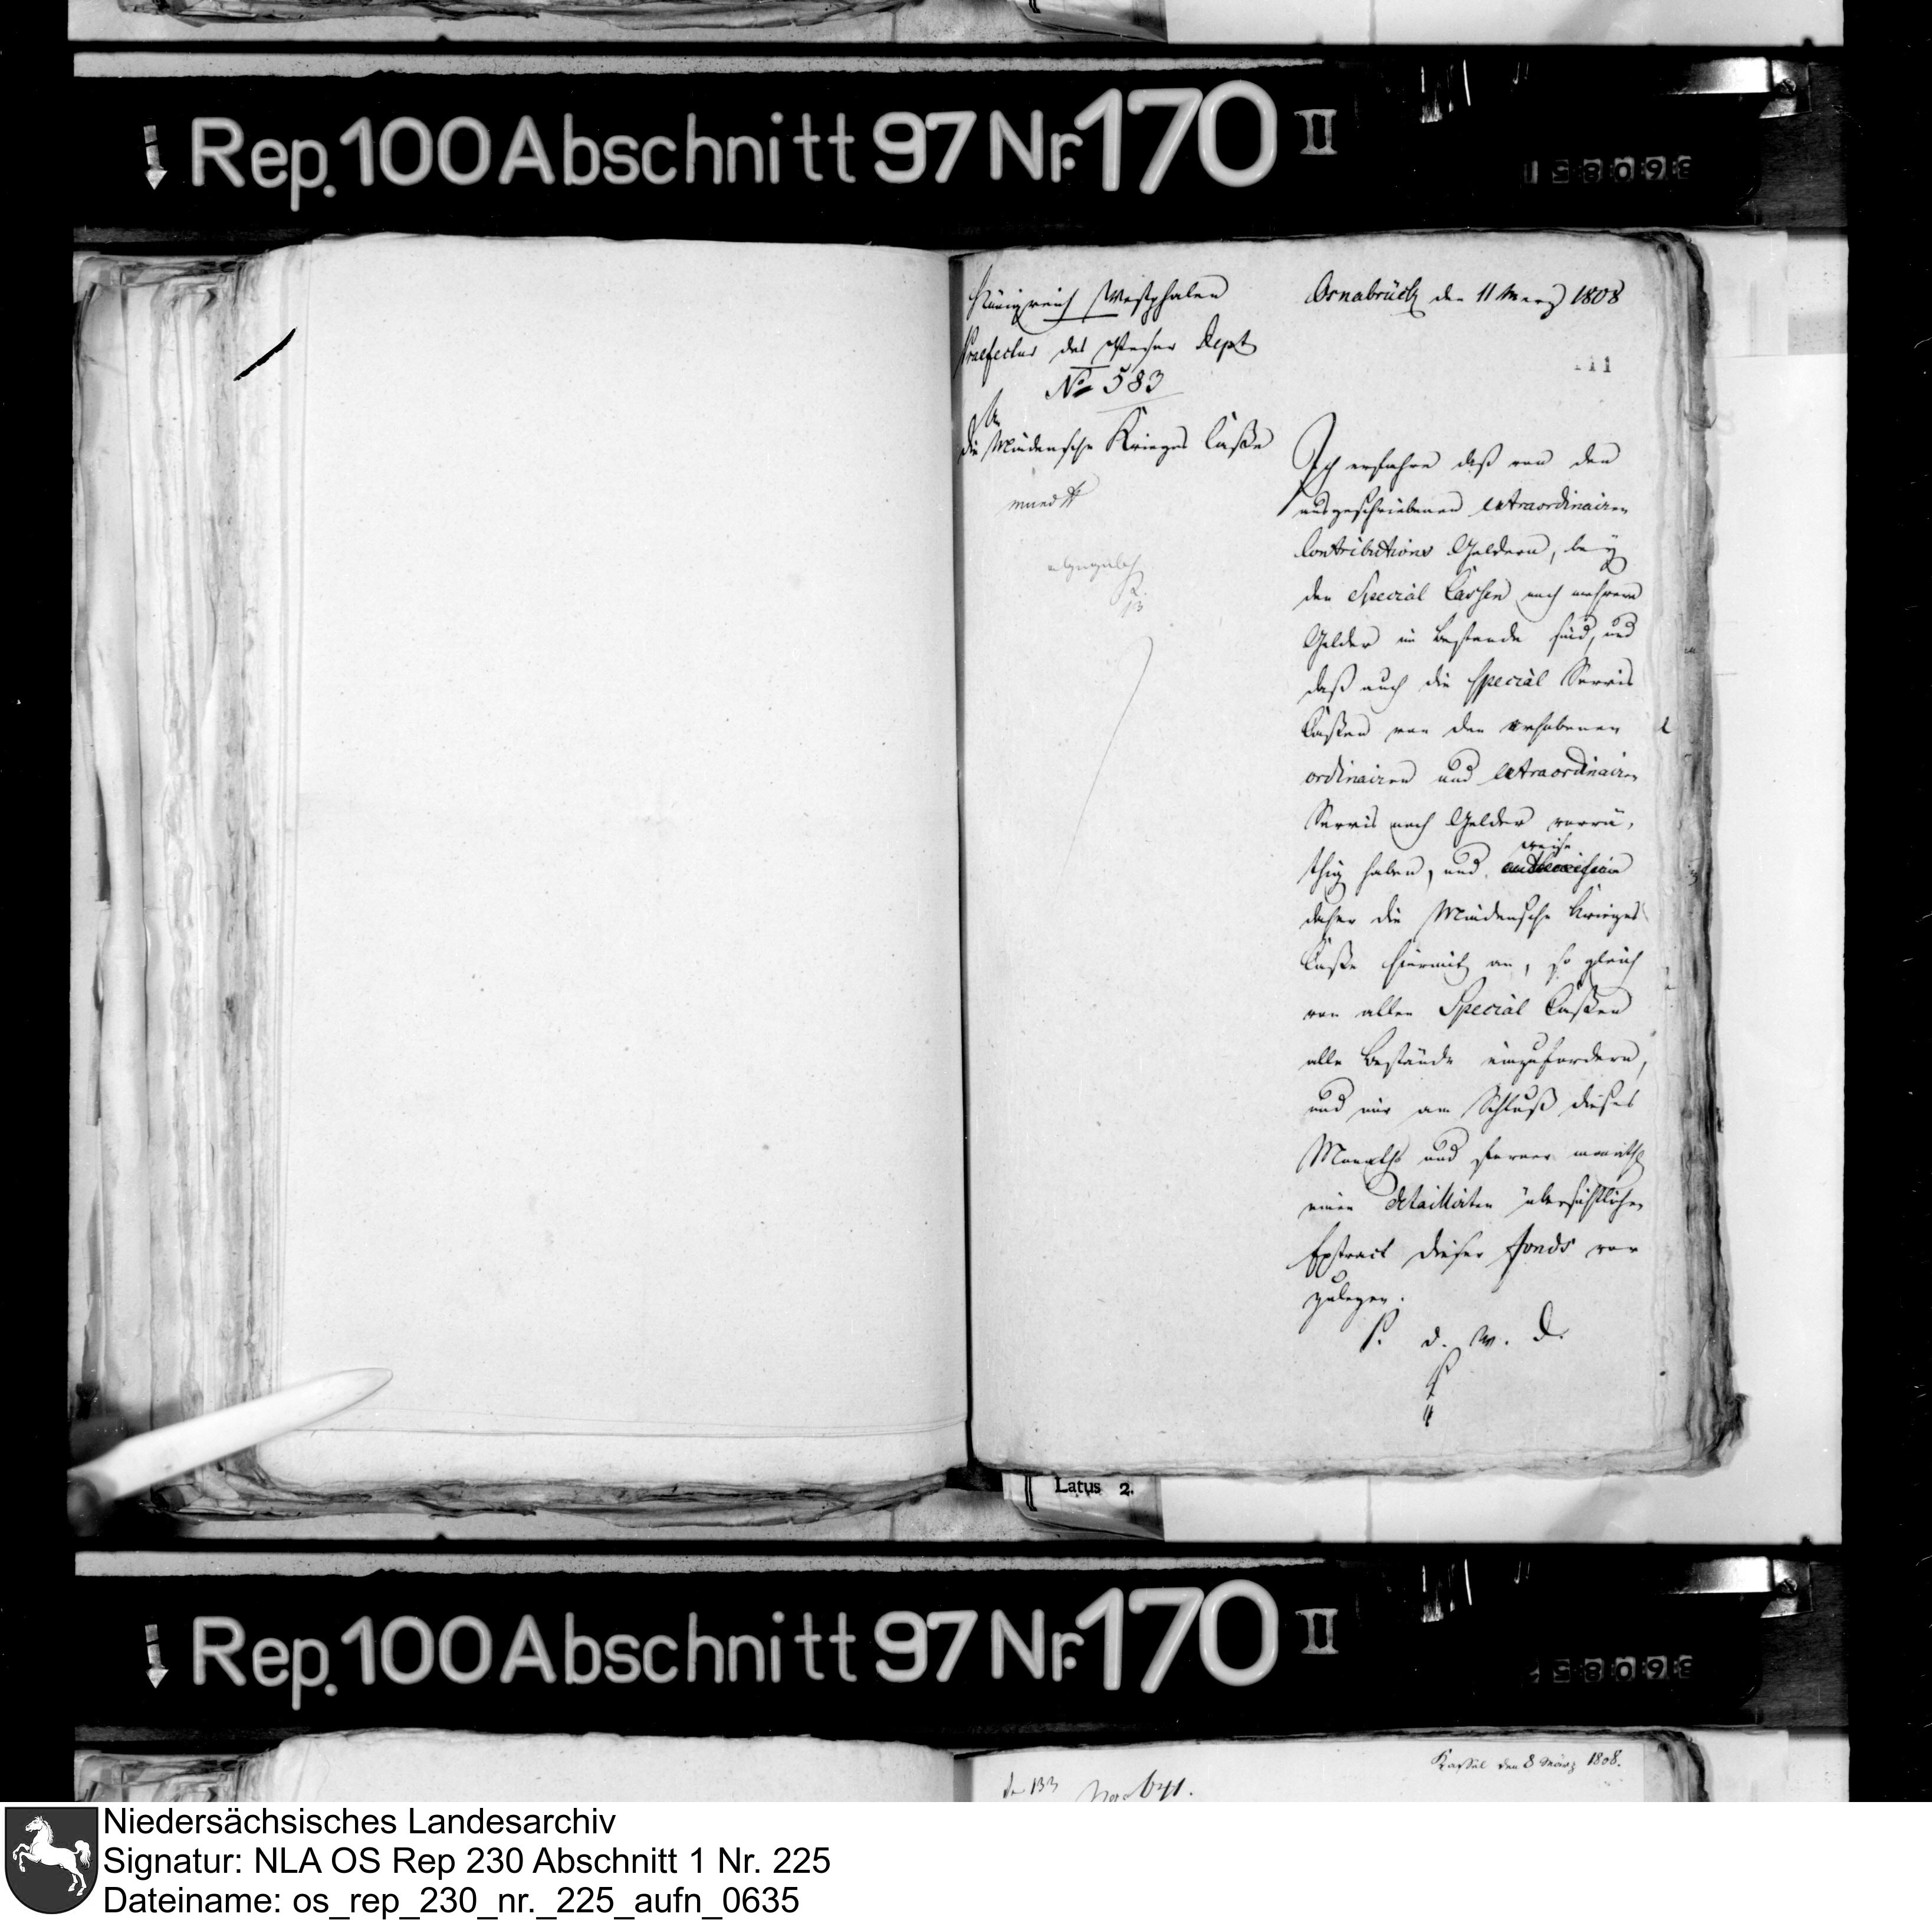 Rep. 100 Abschnitt 97 Nr. 170 II
360851
Königreich Westphalen
Praefectur des Weser Dept
No 583
An
die Mindensche Krieges Casse
Osnabrück den 11 Merz 1808
111
Ich erfahre daß von den
ausgeschriebenen extraordinairen
Contributions Geldern, bey
den Special Cassen noch mehrere
Gelder im Bestande sind, und
daß auch die special Servis
Cassen von den erhobenen
ordinairen und extraordinairen
Servis noch Gelder vorrä,
thig haben, und weise
daher die Mindensche Krieges
Casse hiermit an, so gleich
von allen Special Cassen
alle Bestände einzufordern,
und mir am Schluß dieses
Monaths und ferner monathl
einen detaillirten übersichtlichen
Extract dieser Fonds vor
zulegen.
P. d. W. D.
Latus 2.
Rep. 100 Abschnitt 97 Nr. 170 II
Kassel den 8 März 1808.
Niedersächsisches Landesarchiv
Signatur: NLA OS Rep 230 Abschnitt 1 Nr. 225
Dateiname: os_rep_230_nr._225_aufn_0635